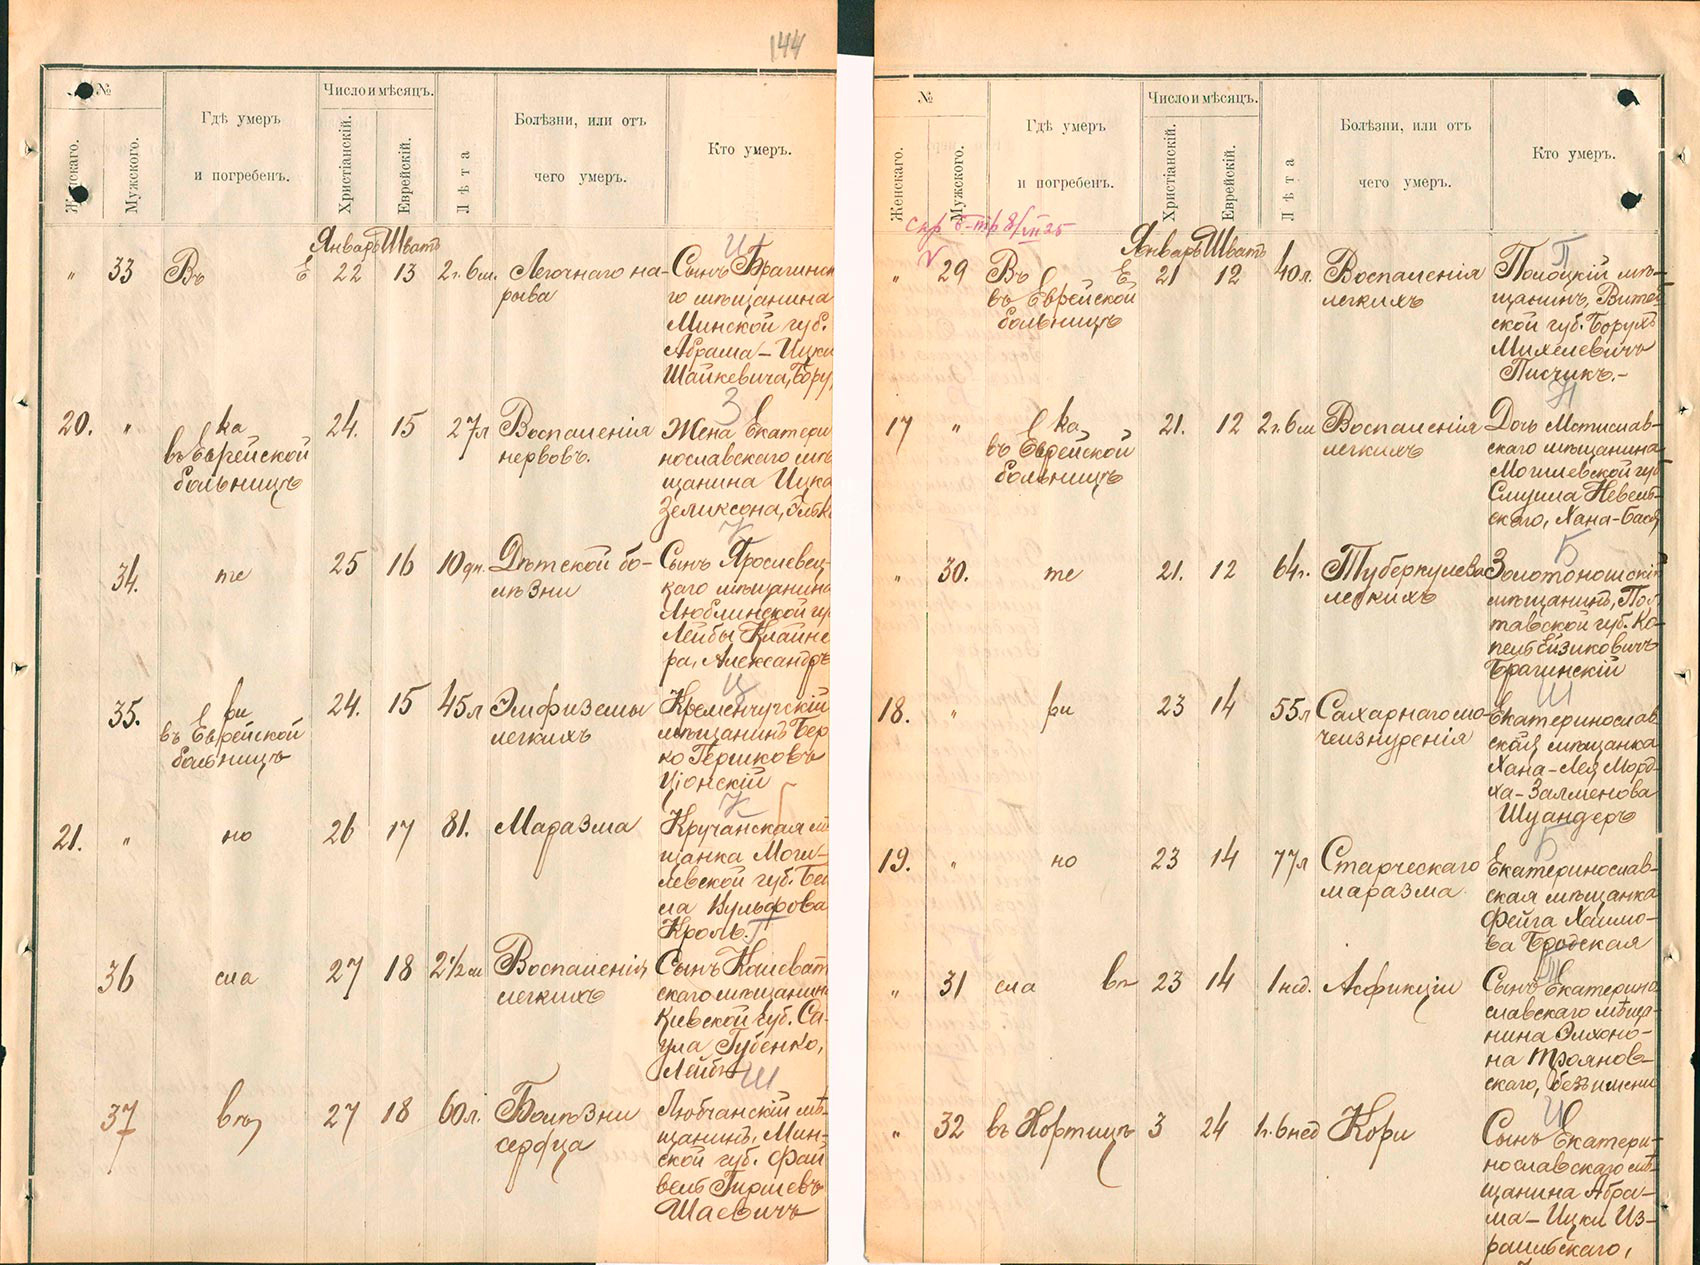 144
№
Женскаго.
Мужского.
Гдѣ умеръ
и погребенъ.
Число и мѣсяцъ.
Христіанскій.
Еврейскій.
Лѣта
Болѣзни, или отъ
чего умеръ.
Кто умеръ.
Январь Шватъ
" 33 Въ Е 22 13 2г. 6м. Легочнаго на-
рыва
И
Сынъ Брагинск
го мѣщанина
Минской губ.
Абрама-Ицки
Шайкевича, Бору
20. " ка
въ Еврейской
больницѣ
24. 15 27л Воспаленія
нервовъ.
З
Жена Екатери
нославскаго мѣ
щанина Ицка
Зеликсона, Элька
34. те 25 16 10дн. Дѣтской бо-
лѣзни
К
Сынъ Ярославец-
каго мѣщанина
Люблинской гу
Лейбы Клайне
ра, Александръ
35. ри
въ Еврейской
больницѣ
24. 15 45л Эмфиземы
легкихъ
Ц
Кременчугскій
мѣщанинъ Бер
ко Гершковъ
Ціонскій
21. " но 26 17 81. Маразма
К
Кручанская мѣ
щанка Моги-
левской губ. Бей
ла Вульфова
Кроль.
36 сла 27 18 2½м Воспаленія
легкихъ
Г
Сынъ Кошеват
скаго мѣщанина
Кіевской губ. Са-
ула Губенко,
Лейба
37 вѣ 27 18 60л. Болѣзни
сердца
Ш
Любчанскій мѣ-
щанинъ, Мин-
ской губ. Фай
вель Гиршевъ
Шаевичъ
№
Женскаго.
Мужского.
Гдѣ умеръ
и погребенъ.
Число и мѣсяцъ.
Христіанскій.
Еврейскій.
Лѣта
Болѣзни, или отъ
чего умеръ.
Кто умеръ.
Январь Шватъ
" 29 Въ Е
въ Еврейской
больницѣ
21 12 40л. Воспаленія
легкихъ
П
Полоцкій мѣ-
щанинъ, Витеб
ской губ. Борухъ
Михелевичъ
Писчикъ.-
17 " ка
въ Еврейской
больницѣ
21. 12 2г. 6м Воспаленія
легкихъ
Н
Дочь Мстислав-
скаго мѣщанина
Могилевской губ
Смуила Невель-
скаго, Хана-Бася
" 30. те 21. 12 64г. Туберкулеза
легкихъ
Б
Золотоношскій
мѣщанинъ, Пол
тавской губ. Ко-
пель Ейзиковичъ
Брагинскій
18. " ри 23 14 55л Сахарнаго мо-
чеизнуренія
Ш
Екатеринослав
ская мѣщанка
Хана-Лея Морд-
ха-Залменова
Шуандеръ
19. " но 23 14 77л Старческаго
маразма
Б
Екатеринослав-
ская мѣщанка
Фейга Хаимо-
ва Бродская
" 31 сла вѣ 23 14 1нед. Асфикціи
Сынъ Екатерино
славскаго мѣща-
нина Элхоно-
на Трояновс-
каго, безъ имени
" 32 въ Хортицѣ 3 24 1г. 6нед Кори
И
Сынъ Екатери-
нославскаго мѣ-
щанина Абра-
ма-Ицки Из-
раильскаго,